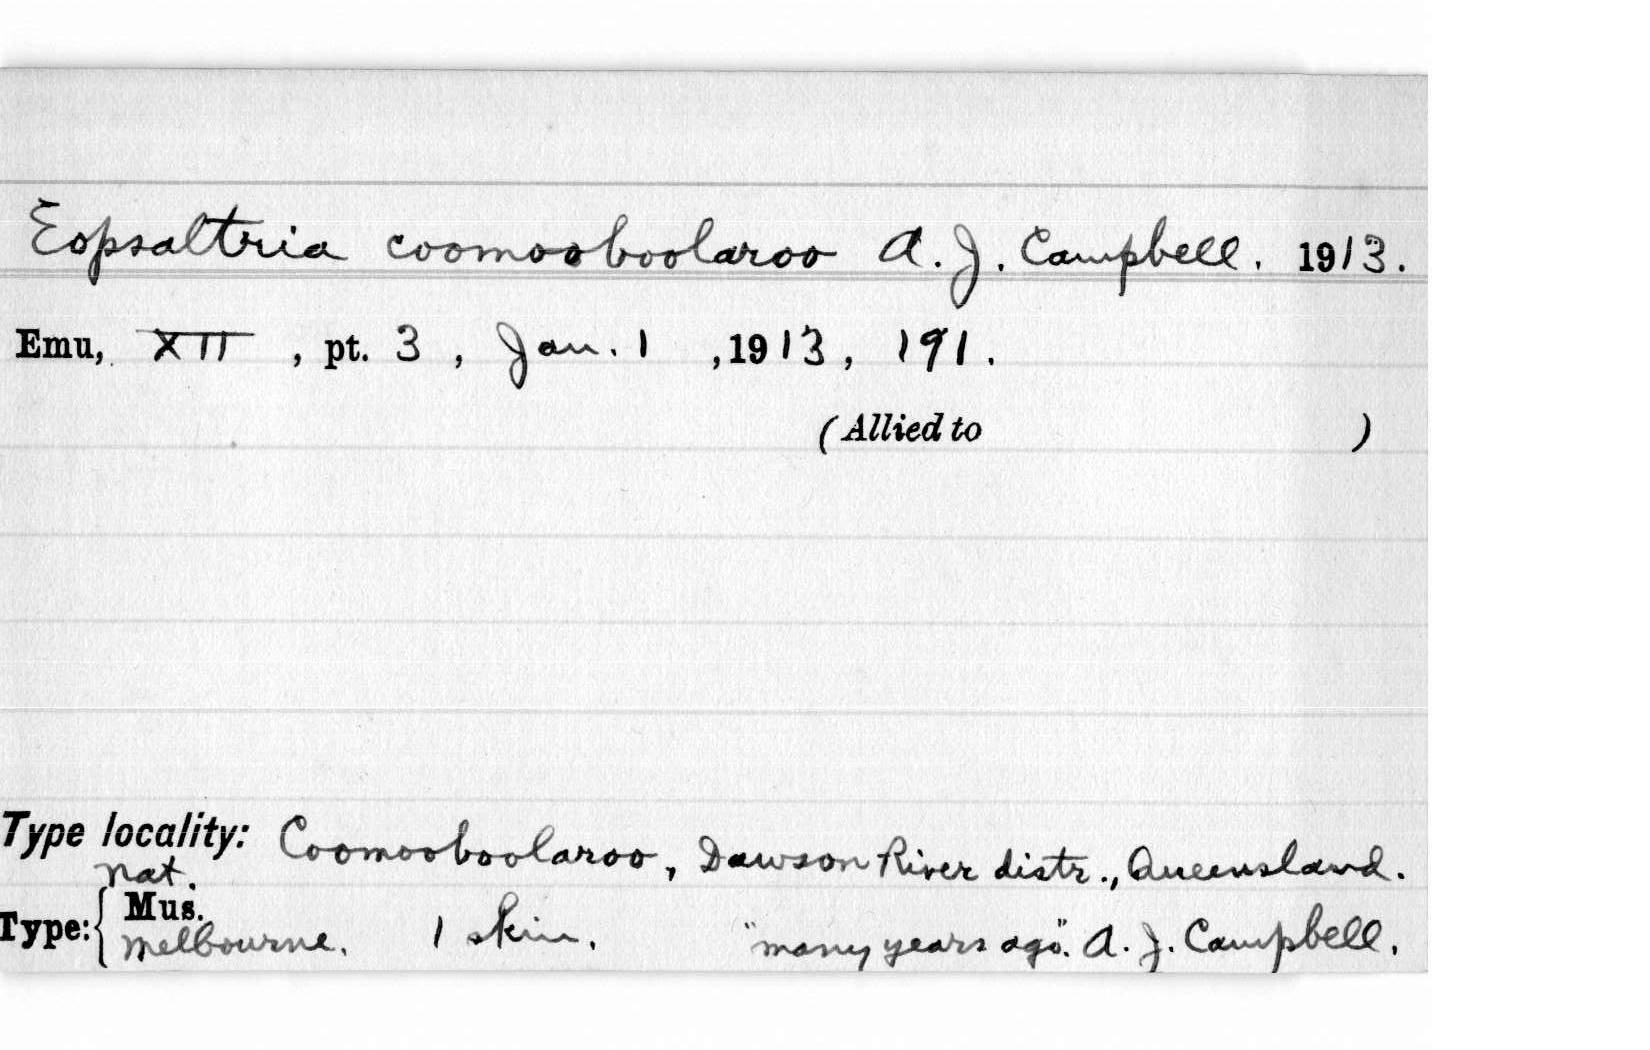 Eopsaltria coomooboolaroo A. J. Campbell. 1913.
Emu, XII, pt. 3, Jan. 1, 1913, 191.
(Allied to )
Type locality: Coomooboolaroo, Dawson River distr., Queensland.
Nat.
Type: { Mus.
Melbourne. 1 skin. "many years ago". A. J. Campbell.